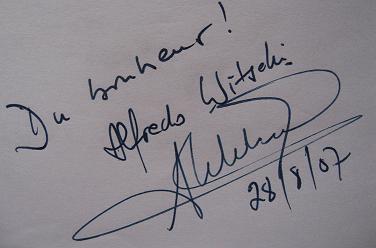 Du bonheur!
Alfredo Witschi
28/8/07